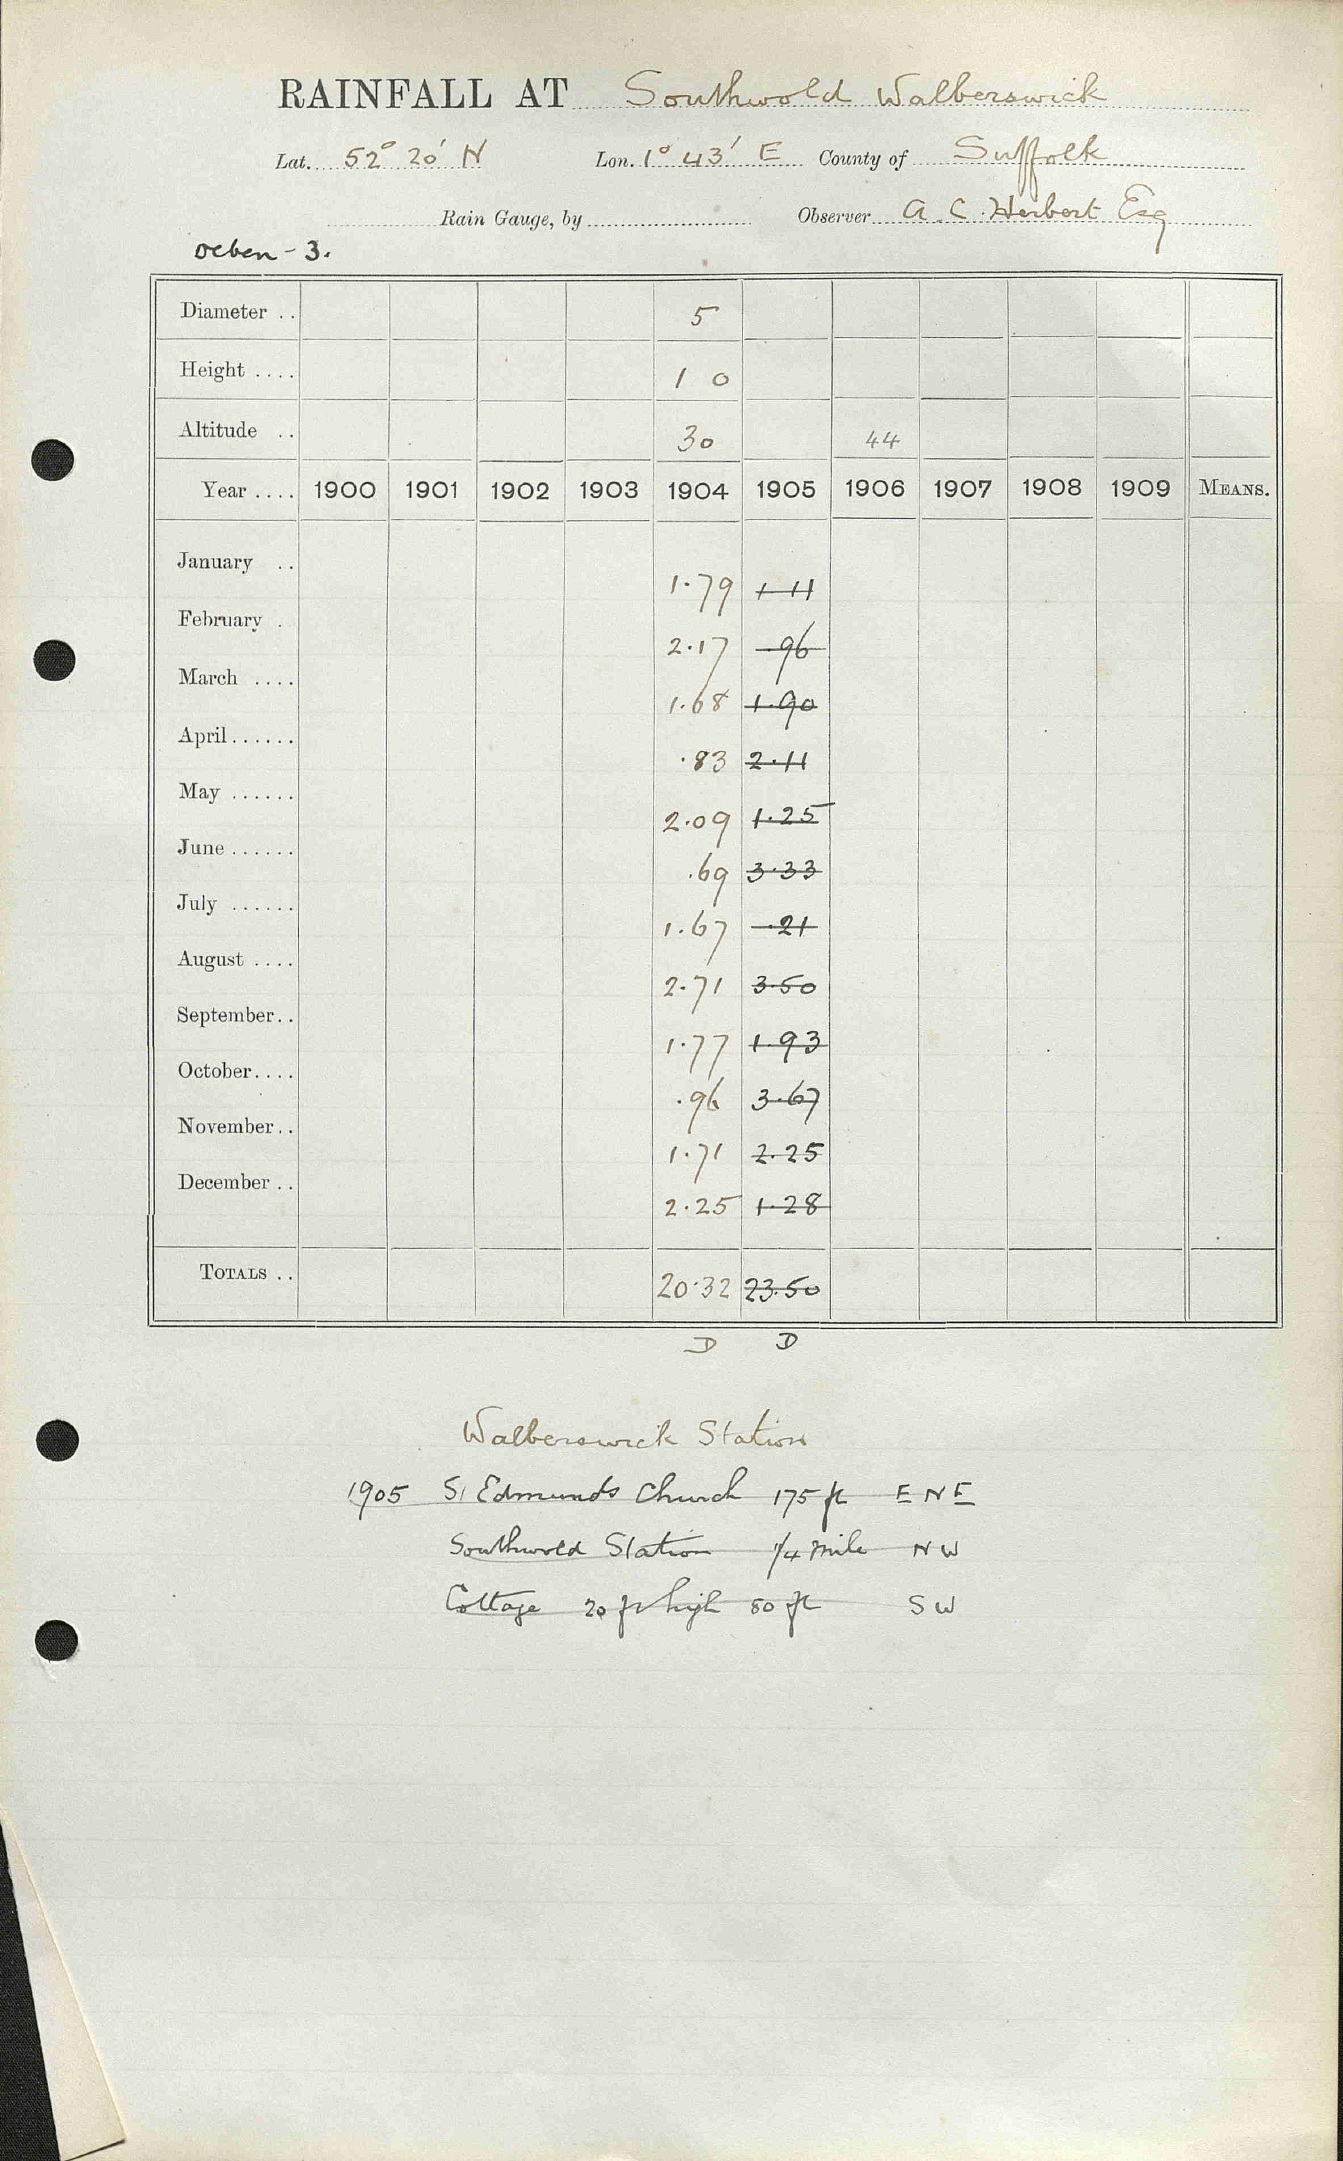 RAINFALL AT Southwold Walberswick
Lat. 52° 20' N Lon. 1° 43' E County of Suffolk
Rain Gauge, by Observer A. C. Herbert Esq
3.
Diameter .. 5
Height .... 1 0
Altitude .. 30 44
Year .... 1900 1901 1902 1903 1904 1905 1906 1907 1908 1909 MEANS.
January .. 1.79 1 11
February . 2.17 96
March .... 1.68 1.90
April...... .83 2.11
May ...... 2.09 1.25
June ...... .69 3.33
July ...... 1.67 .21
August .... 2.71 3.50
September.. 1.77 1.93
October.... .96 3.67
November.. 1.71 2.25
December .. 2.25 1.28
TOTALS .. 20.32 23.50
D D
Walberswick Station
1905 St Edmunds Church 175 ft E N E
Southwold Station 1/4 mile N W
Cottage 20 ft high 50 ft S W